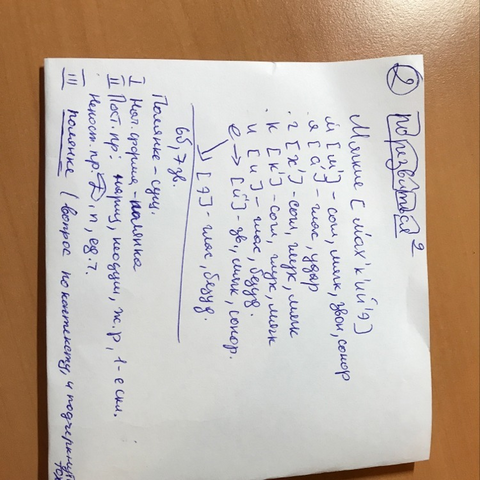 ② Порезвиться²
Мягкие [м'ах'к'ий'э]
м [м'] - согл, мягк, звон, сонор
я [а́] - глас, удар
г [х'] - согл, глух, мягк
к [к'] - согл, глух, мягк
и [и] - глас, безуд.
е → [й'] - зв, мягк, сонор.
[э] - глас, безуд.
6б, 7 зв.
Полянке - сущ.
I Нач. форма - полянка
II Пост. пр: нариц, неодуш, ж.р, 1-е скл.
Непост. пр. Д.п, ед. ч.
III полянке (вопрос по контексту, и подчеркнуть